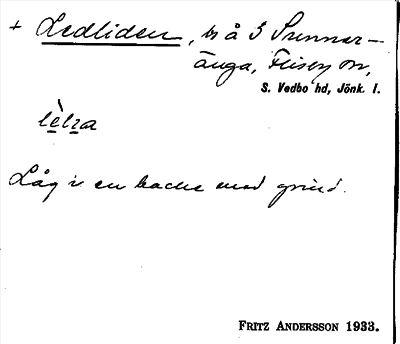 + Ledliden, ts å S Sunnar-
änga, Flisby sn,
S. Vedbo hd, Jönk. l.
Låg i en backe med grind.
FRITZ ANDERSSON 1933.